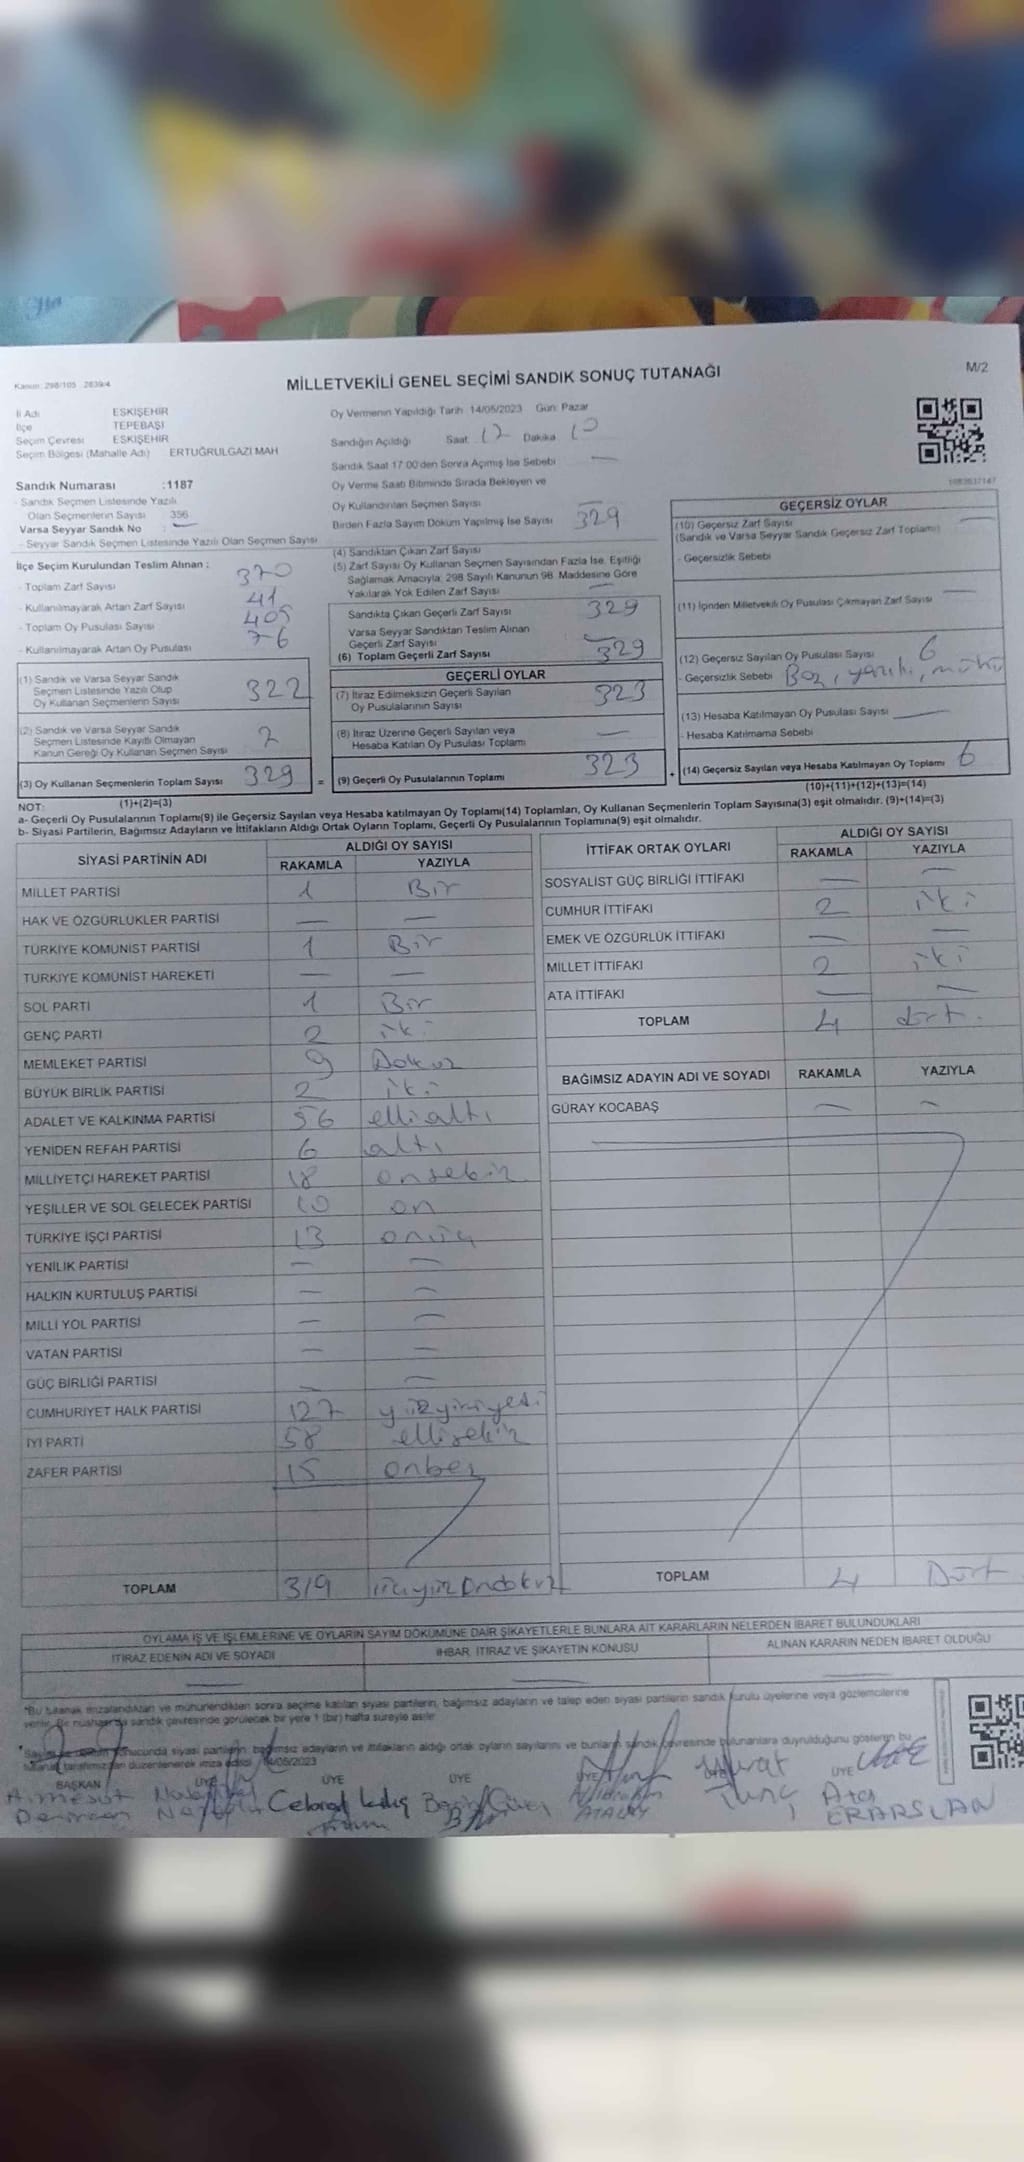 Kanun: 298/105 , 2839/4
MİLLETVEKİLİ GENEL SEÇİMİ SANDIK SONUÇ TUTANAĞI
M/2
İl Adı ESKİŞEHİR
İlçe TEPEBAŞI
Seçim Çevresi ESKİŞEHİR
Seçim Bölgesi (Mahalle Adı) ERTUĞRULGAZİ MAH
Sandık Numarası :1187
- Sandık Seçmen Listesinde Yazılı
Olan Seçmenlerin Sayısı 356
Varsa Seyyar Sandık No : —
- Seyyar Sandık Seçmen Listesinde Yazılı Olan Seçmen Sayısı
Oy Vermenin Yapıldığı Tarih 14/05/2023 Gün: Pazar
Sandığın Açıldığı Saat 17 Dakika 10
Sandık Saat 17:00'den Sonra Açılmış İse Sebebi —
Oy Verme Saati Bitiminde Sırada Bekleyen ve
Oy Kullandırılan Seçmen Sayısı —
Birden Fazla Sayım Döküm Yapılmış İse Sayısı
İlçe Seçim Kurulundan Teslim Alınan :
- Toplam Zarf Sayısı 370
- Kullanılmayarak Artan Zarf Sayısı 41
- Toplam Oy Pusulası Sayısı 405
- Kullanılmayarak Artan Oy Pusulası 76
(1) Sandık ve Varsa Seyyar Sandık
Seçmen Listesinde Yazılı Olup
Oy Kullanan Seçmenlerin Sayısı 322
(2) Sandık ve Varsa Seyyar Sandık
Seçmen Listesinde Kayıtlı Olmayan
Kanun Gereği Oy Kullanan Seçmen Sayısı 7
(3) Oy Kullanan Seçmenlerin Toplam Sayısı 329 =
(1)+(2)=(3)
(4) Sandıktan Çıkan Zarf Sayısı 329
(5) Zarf Sayısı Oy Kullanan Seçmen Sayısından Fazla İse, Eşitliği
Sağlamak Amacıyla; 298 Sayılı Kanunun 98. Maddesine Göre
Yakılarak Yok Edilen Zarf Sayısı —
Sandıkta Çıkan Geçerli Zarf Sayısı 329
Varsa Seyyar Sandıktan Teslim Alınan
Geçerli Zarf Sayısı —
(6) Toplam Geçerli Zarf Sayısı 329
GEÇERLİ OYLAR
(7) İtiraz Edilmeksizin Geçerli Sayılan
Oy Pusulalarının Sayısı 323
(8) İtiraz Üzerine Geçerli Sayılan veya
Hesaba Katılan Oy Pusulası Toplamı —
(9) Geçerli Oy Pusulalarının Toplamı 323 +
GEÇERSİZ OYLAR
(10) Geçersiz Zarf Sayısı
(Sandık ve Varsa Seyyar Sandık Geçersiz Zarf Toplamı) —
- Geçersizlik Sebebi
(11) İçinden Milletvekili Oy Pusulası Çıkmayan Zarf Sayısı —
(12) Geçersiz Sayılan Oy Pusulası Sayısı 6
- Geçersizlik Sebebi Boz, yazılı,
(13) Hesaba Katılmayan Oy Pusulası Sayısı —
- Hesaba Katılmama Sebebi
(14) Geçersiz Sayılan veya Hesaba Katılmayan Oy Toplamı 6
(10)+(11)+(12)+(13)=(14)
NOT:
a- Geçerli Oy Pusulalarının Toplamı(9) ile Geçersiz Sayılan veya Hesaba katılmayan Oy Toplamı(14) Toplamları, Oy Kullanan Seçmenlerin Toplam Sayısına(3) eşit olmalıdır. (9)+(14)=(3)
b- Siyasi Partilerin, Bağımsız Adayların ve İttifakların Aldığı Ortak Oyların Toplamı, Geçerli Oy Pusulalarının Toplamına(9) eşit olmalıdır.
SİYASİ PARTİNİN ADI ALDIĞI OY SAYISI
RAKAMLA YAZIYLA
MİLLET PARTİSİ 1 Bir
HAK VE ÖZGÜRLÜKLER PARTİSİ — —
TÜRKİYE KOMÜNİST PARTİSİ 1 Bir
TÜRKİYE KOMÜNİST HAREKETİ — —
SOL PARTİ 1 Bir
GENÇ PARTİ 2 iki
MEMLEKET PARTİSİ 9 Dokuz
BÜYÜK BİRLİK PARTİSİ 2 iki
ADALET VE KALKINMA PARTİSİ 56 ellialtı
YENİDEN REFAH PARTİSİ 6 altı
MİLLİYETÇİ HAREKET PARTİSİ 18 onsekiz
YEŞİLLER VE SOL GELECEK PARTİSİ 10 on
TÜRKİYE İŞÇİ PARTİSİ 13 onüç
YENİLİK PARTİSİ — —
HALKIN KURTULUŞ PARTİSİ — —
MİLLİ YOL PARTİSİ — —
VATAN PARTİSİ — —
GÜÇ BİRLİĞİ PARTİSİ — —
CUMHURİYET HALK PARTİSİ 127 yüzyirmiyedi
İYİ PARTİ 58 ellisekiz
ZAFER PARTİSİ 15 onbeş
TOPLAM 319 üçyüzOndokuz
İTTİFAK ORTAK OYLARI ALDIĞI OY SAYISI
RAKAMLA YAZIYLA
SOSYALİST GÜÇ BİRLİĞİ İTTİFAKI — —
CUMHUR İTTİFAKI 2 iki
EMEK VE ÖZGÜRLÜK İTTİFAKI — —
MİLLET İTTİFAKI 2 iki
ATA İTTİFAKI — —
TOPLAM 4 dört
BAĞIMSIZ ADAYIN ADI VE SOYADI RAKAMLA YAZIYLA
GÜRAY KOCABAŞ — —
TOPLAM 4 Dört
OYLAMA İŞ VE İŞLEMLERİNE VE OYLARIN SAYIM DÖKÜMÜNE DAİR ŞİKAYETLERLE BUNLARA AİT KARARLARIN NELERDEN İBARET BULUNDUKLARI
İTİRAZ EDENİN ADI VE SOYADI İHBAR, İTİRAZ VE ŞİKAYETİN KONUSU ALINAN KARARIN NEDEN İBARET OLDUĞU
— — —
*Bu tutanak imzalandıktan ve mühürlendikten sonra seçime katılan siyasi partilerin, bağımsız adayların ve talep eden siyasi partilerin sandık kurulu üyelerine veya gözlemcilerine
verilir. Bir nüshası da sandık çevresinde görülecek bir yere 1 (bir) hafta süreyle asılır.
sonucunda siyasi partilerin, bağımsız adayların ve ittifakların aldığı ortak oyların sayılarını ve bunların sandık çevresinde bulunanlara duyrulduğunu gösteren bu
tutanak tarafımızdan düzenlenerek imza edildi. 14/05/2023
BAŞKAN ÜYE ÜYE ÜYE ÜYE ÜYE
ATALAY Tunç Ata
ERARSLAN